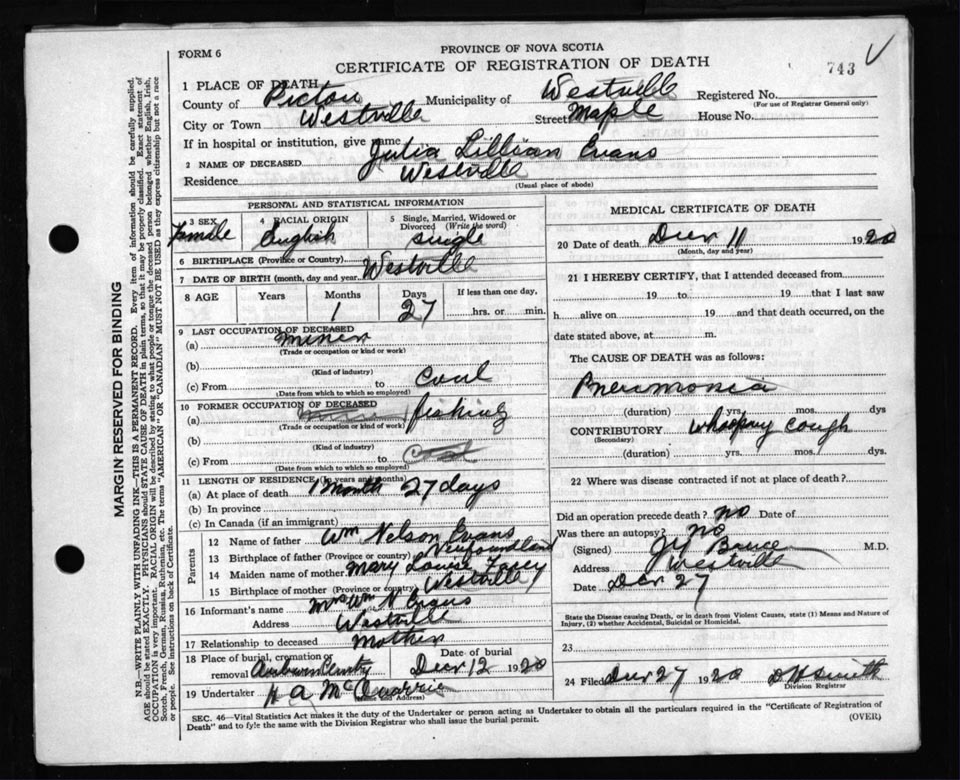 FORM 6
PROVINCE OF NOVA SCOTIA
CERTIFICATE OF REGISTRATION OF DEATH
743
MARGIN RESERVED FOR BINDING
N.B.—WRITE PLAINLY WITH UNFADING INK—THIS IS A PERMANENT RECORD. Every item of information should be carefully supplied.
AGE should be stated EXACTLY. PHYSICIANS should STATE CAUSE OF DEATH in plain terms, so that it may be properly classified. Exact statement of
OCCUPATION is very important. RACIAL ORIGIN will be described by stating to what people or tongue the deceased person belonged whether English, Irish,
Scotch, French, German, Russian, Ruthenian, etc. The terms "AMERICAN" or "CANADIAN" MUST NOT BE USED as they express citizenship but not a race
or people. See instructions on back of Certificate.
1 PLACE OF DEATH
County of Pictou Municipality of Westville Registered No.
(For use of Registrar General only)
City or Town Westville Street Maple House No.
If in hospital or institution, give name
2 NAME OF DECEASED Julia Lillian Evans
Residence Westville
(Usual place of abode)
PERSONAL AND STATISTICAL INFORMATION
3 SEX Female 4 RACIAL ORIGIN English 5 Single, Married, Widowed or Divorced (Write the word) single
6 BIRTHPLACE (Province or Country) Westville
7 DATE OF BIRTH (month, day and year)
8 AGE Years Months 1 Days 27 If less than one day, hrs. or min.
9 LAST OCCUPATION OF DECEASED
(a) miner
(Trade or occupation or kind of work)
(b)
(Kind of industry)
(c) From to coal
(Date from which to which so employed)
10 FORMER OCCUPATION OF DECEASED
(a) fishing
(Trade or occupation or kind of work)
(b)
(Kind of industry)
(c) From to coal
(Date from which to which so employed)
11 LENGTH OF RESIDENCE (In years and months)
(a) At place of death 1 Month 27 days
(b) In province
(c) In Canada (if an immigrant)
Parents
12 Name of father Wm Nelson Evans
13 Birthplace of father (Province or country) Newfoundland
14 Maiden name of mother Mary Louise
15 Birthplace of mother (Province or country) Westville
16 Informant's name Mrs Wm N Evans
Address Westville
17 Relationship to deceased Mother
18 Place of burial, cremation or removal Date of burial Decr 12 1920
19 Undertaker H A McQuarrie (Address)
MEDICAL CERTIFICATE OF DEATH
20 Date of death Decr 11 1920
(Month, day and year)
21 I HEREBY CERTIFY, that I attended deceased from
19 to 19 that I last saw
h alive on 19 and that death occurred, on
date stated above, at m.
The CAUSE OF DEATH was as follows:
Pneumonia
(duration) yrs. mos. dys
CONTRIBUTORY whooping cough
(Secondary)
(duration) yrs. mos. dys.
22 Where was disease contracted if not at place of death?
Did an operation precede death? no Date of
Was there an autopsy? no
(Signed) Bruce M.D.
Address Westville
Date Decr 27
State the Disease causing Death, or in death from Violent Causes, state (1) Means and Nature of
Injury, (2) whether Accidental, Suicidal or Homicidal.
23
24 Filed Decr 27 1920 D H Smith
Division Registrar
SEC. 46—Vital Statistics Act makes it the duty of the Undertaker or person acting as Undertaker to obtain all the particulars required in the "Certificate of Registration of
Death" and to fyle the same with the Division Registrar who shall issue the burial permit.
(OVER)